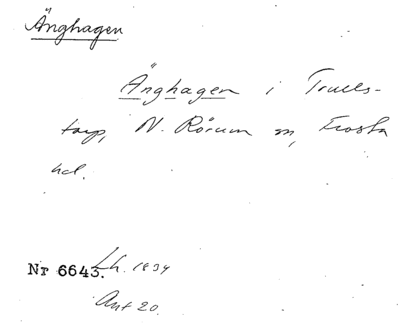 Änghagen
Änghagen i Trulls-
torp, N. Rörum sn, Frosta
hd.
Nr 6643. Lh. 1834
Ant 20.